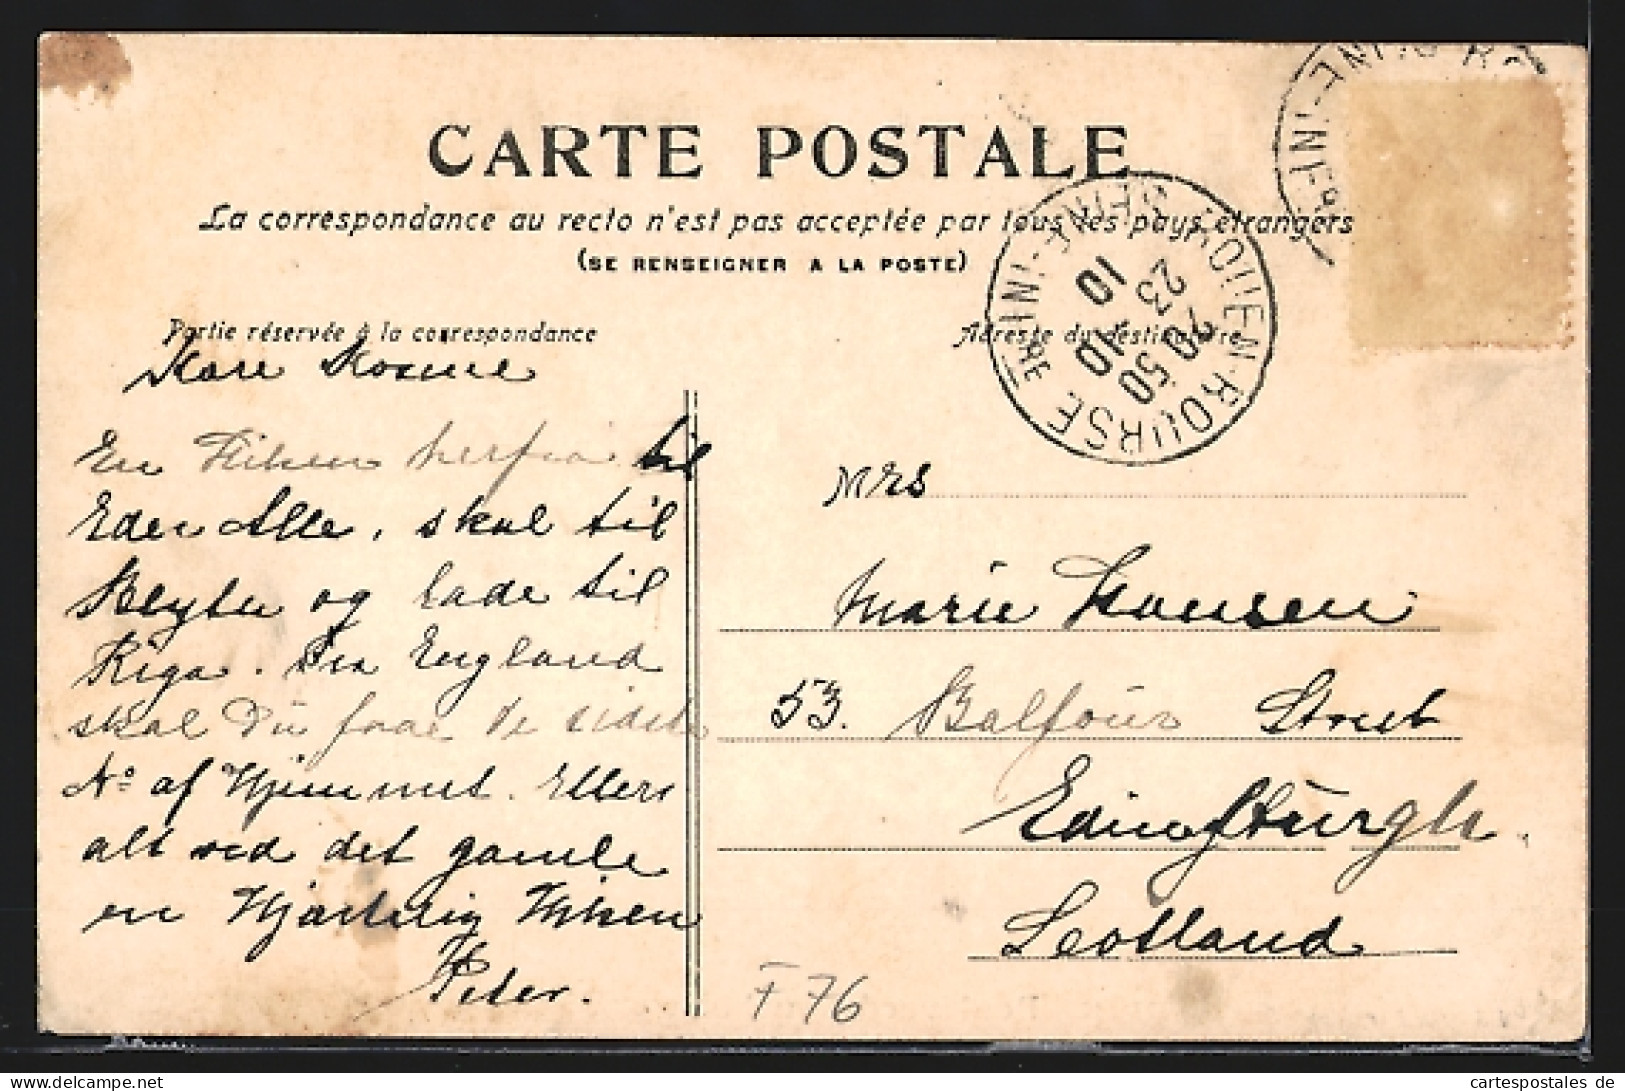 CARTE POSTALE
La correspondance au recto n'est pas acceptée par tous les pays étrangers
(SE RENSEIGNER A LA POSTE)
Partie réservée à la correspondance
Adresse du destinataire
Kære Kosme
En Hilsen herfra til
Eder Alle, skal til
Blyth og lade til
Riga. Fra England
skal Du faae de sidste
No af Hjemmet. Ellers
alt ved det gamle
en Hjærtelig Hilsen
Peter.
ROUEN-BOURSE
SEINE-INFRE
20 50
23 10
10
Mrs
Marie Hansen
53. Balfour Street
Edinfburgh.
Scotland
F 76
cartespostales de
www.delcampe.net/de/sammlerobjekte/